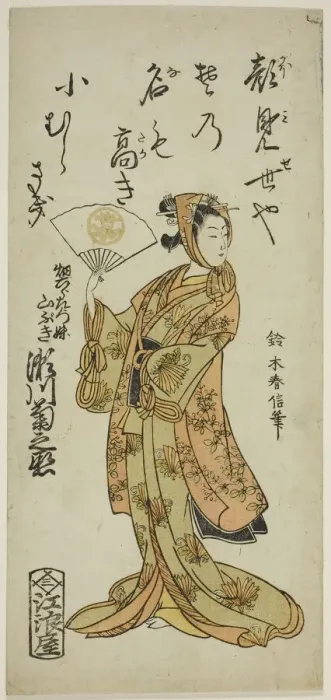 顔見世や
其の
名も
高き
小むら
さき
惣左衛門妹
山ぶき
瀬川菊之丞
鈴木春信筆
三
江浪屋